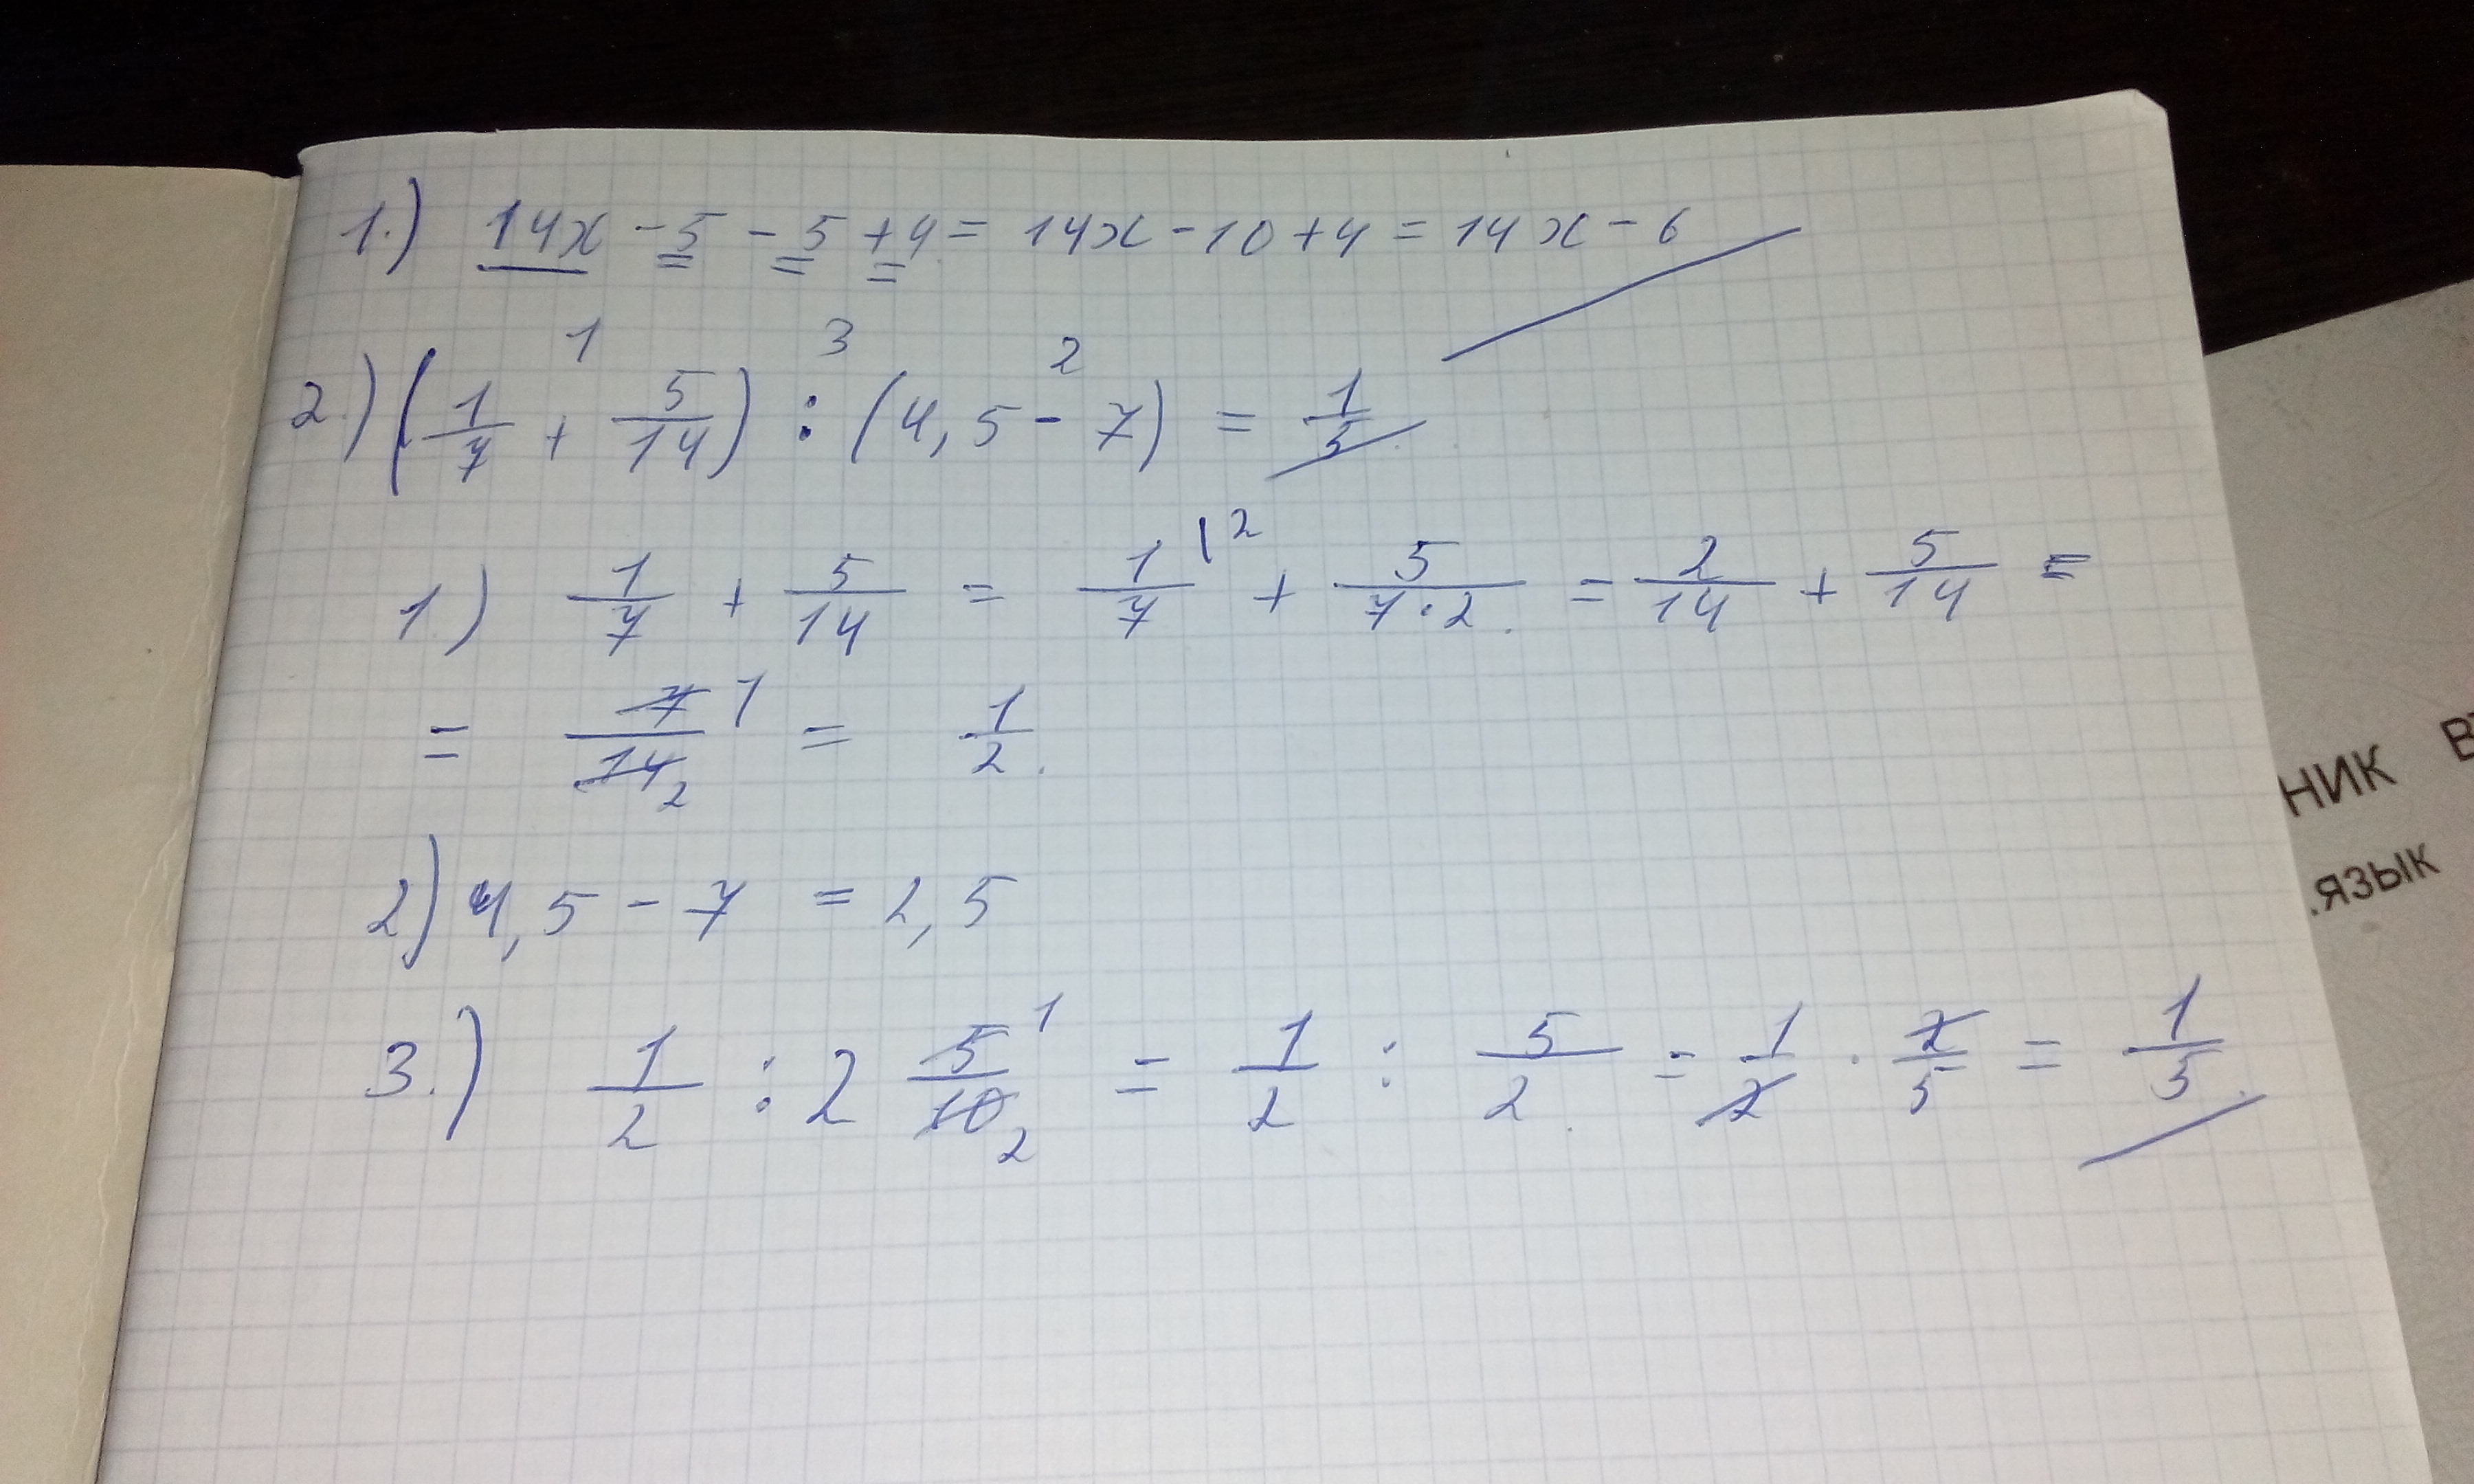 1.) 14x - 5 - 5 + 4 = 14x - 10 + 4 = 14x - 6
1 3 2
2.) (1/7 + 5/14) : (4,5 - 7) = 1/5
1.) 1/7 + 5/14 = 1/7 |2 + 5/7·2 = 2/14 + 5/14 =
= 7/14 1 2 = 1/2.
2) 4,5 - 7 = 2,5
3.) 1/2 : 2 5/10 1 2 = 1/2 : 5/2. = 1/2 · 2/5 = 1/5.
НИК В
.ЯЗЫК